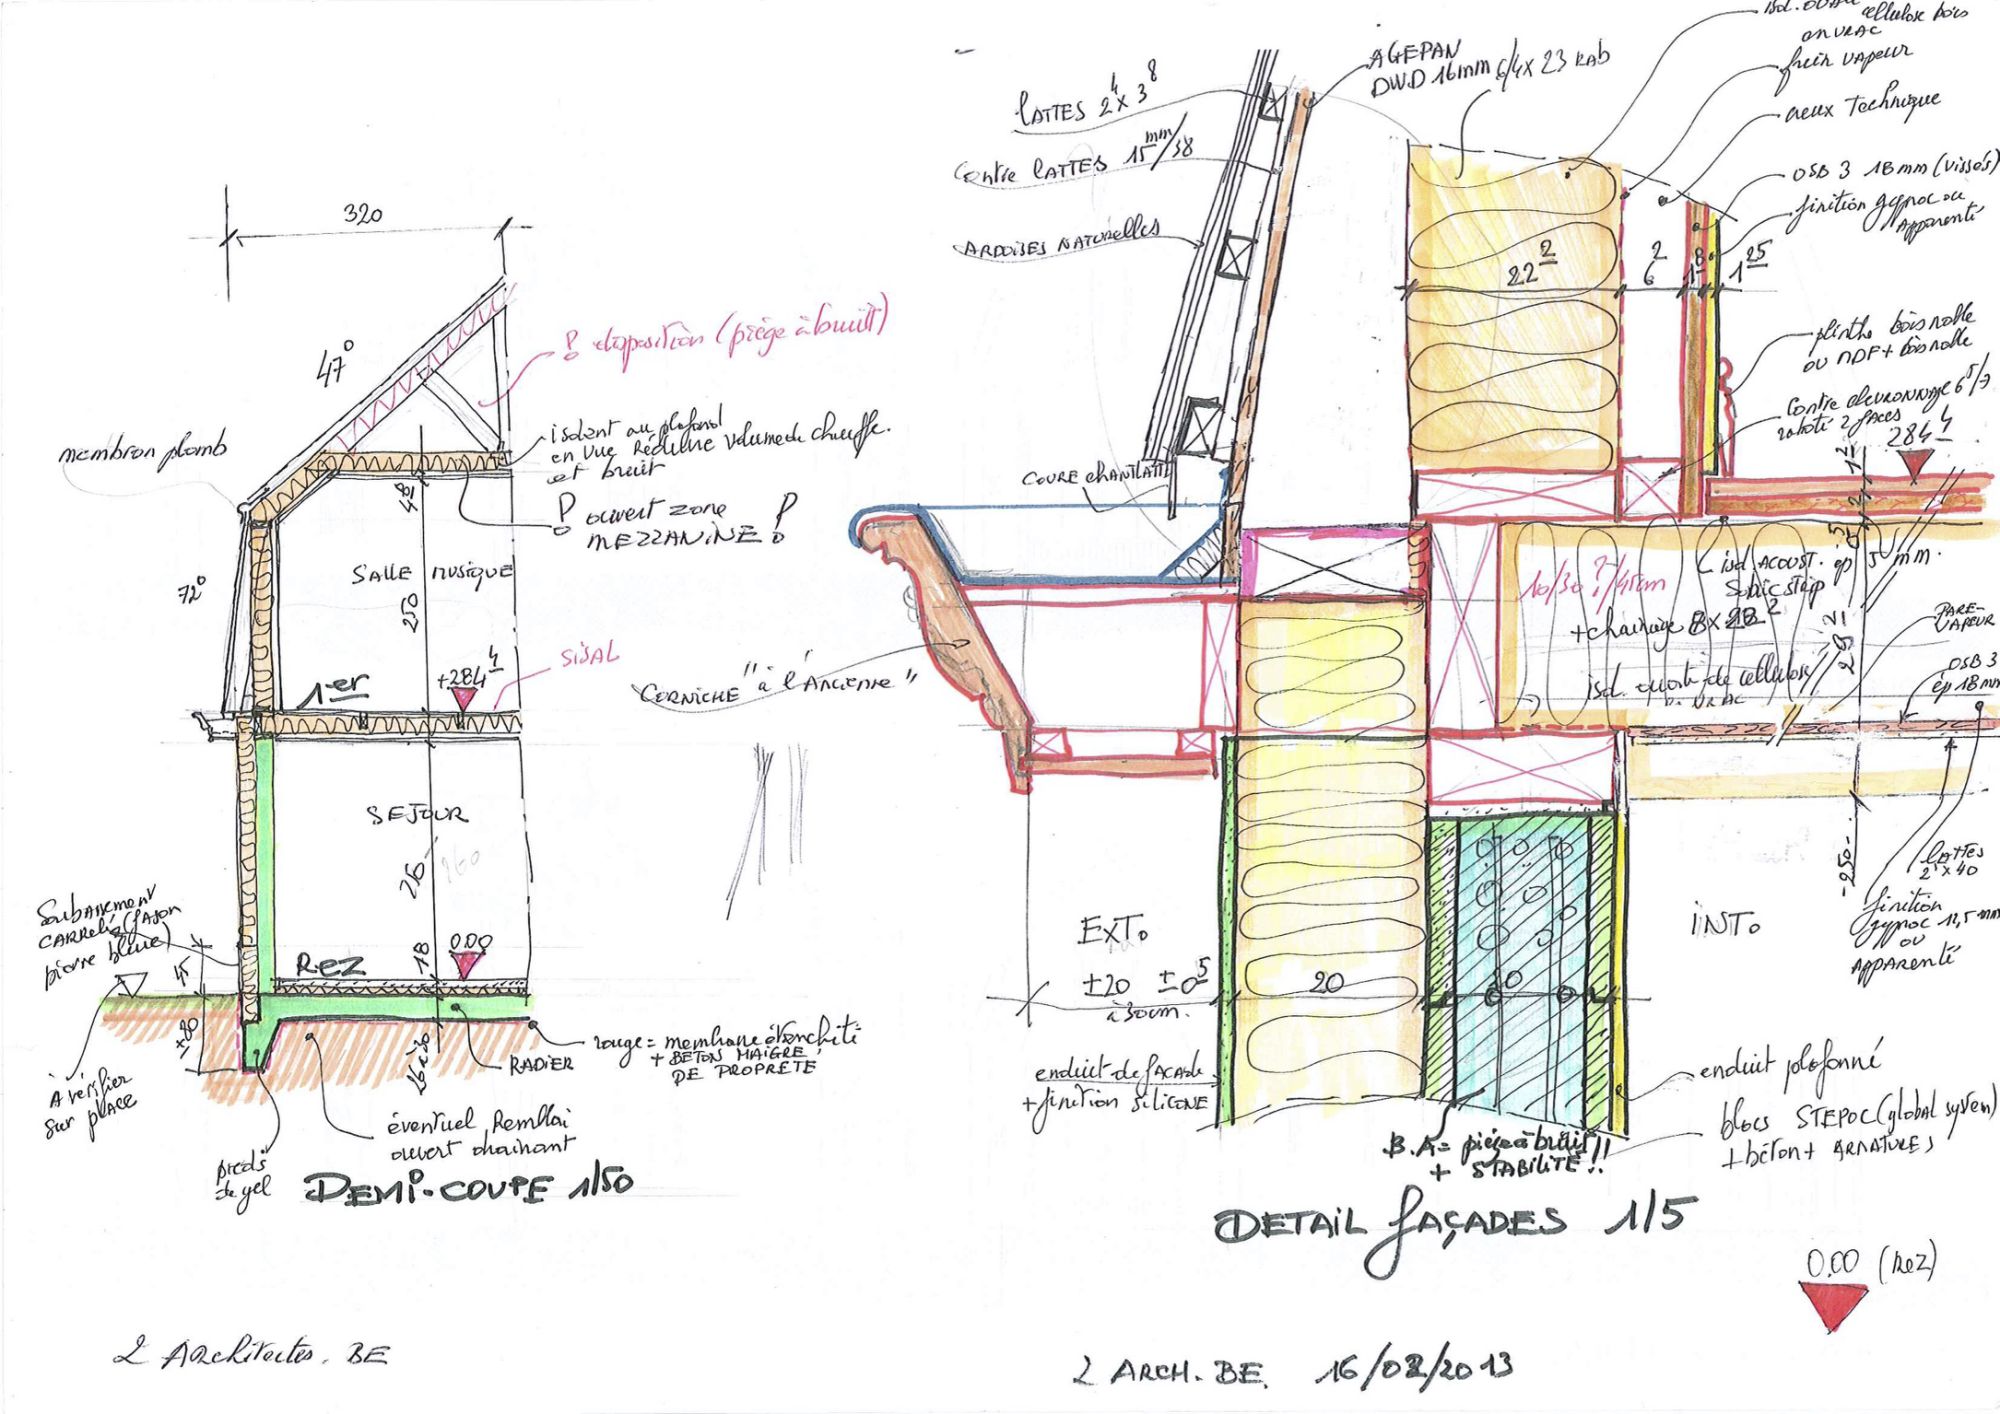 320
47°
? disposition (piège à bruit)
membron plomb
isolant au plafond
en vue Réduire volume de chauffe.
et bruit
? ouvert zone
MEZZANINE ?
48
SALLE MUSIQUE
250
72°
SISAL
1er
+284 4
SEJOUR
260
Soubassement
CARRELé (façon
pierre bleue)
45
18
0.00
REZ
±80
à vérifier
sur place
RADIER
rouge = membrane étanchéité
+ BETON MAIGRE
DE PROPRETE
éventuel Remblai
ouvert drainant
pieds
de gel
DEMI-COUPE 1/50
2 Architectes. BE
cellulose bois
en VRAC
frein vapeur
creux technique
OSB 3 18 mm (vissés)
finition gyproc ou
Apparenté
AGEPAN
DWD 16mm 6/4 x 23 RAB
LATTES 2 4 x 3 8
Contre LATTES 15 mm/38
ARDOISES NATURELLES
22 2
6 2
1 8
1 25
plinthe bois noble
ou MDF + bois noble
Contre chevronnage 6 5/7
raboté 2 faces
284 4
COURE chANLATTE
isol ACOUST. ep 5 mm.
Sonic strip
10/30 ?/45cm
+ chainage 8 x
isd. ouate de cellulose
VRAC
29 2
PARE-
VAPEUR
OSB 3
ép 18 mm
CORNICHE "à l'Ancienne"
LATTES
2 4 x 40
-250-
finition
gyproc 12,5 mm
ou
apparenté
EXT.
INT.
±20
±0 5
à 30cm.
20
enduit de façade
+ finition SILICONE
enduit plafonné
blocs STEPOC (global system)
+ béton + ARMATURES
B.A = piège à bruit!!
+ STABILITE!!
DETAIL FAÇADES 1/5
0.00 (REZ)
2 ARCH. BE. 16/02/2013